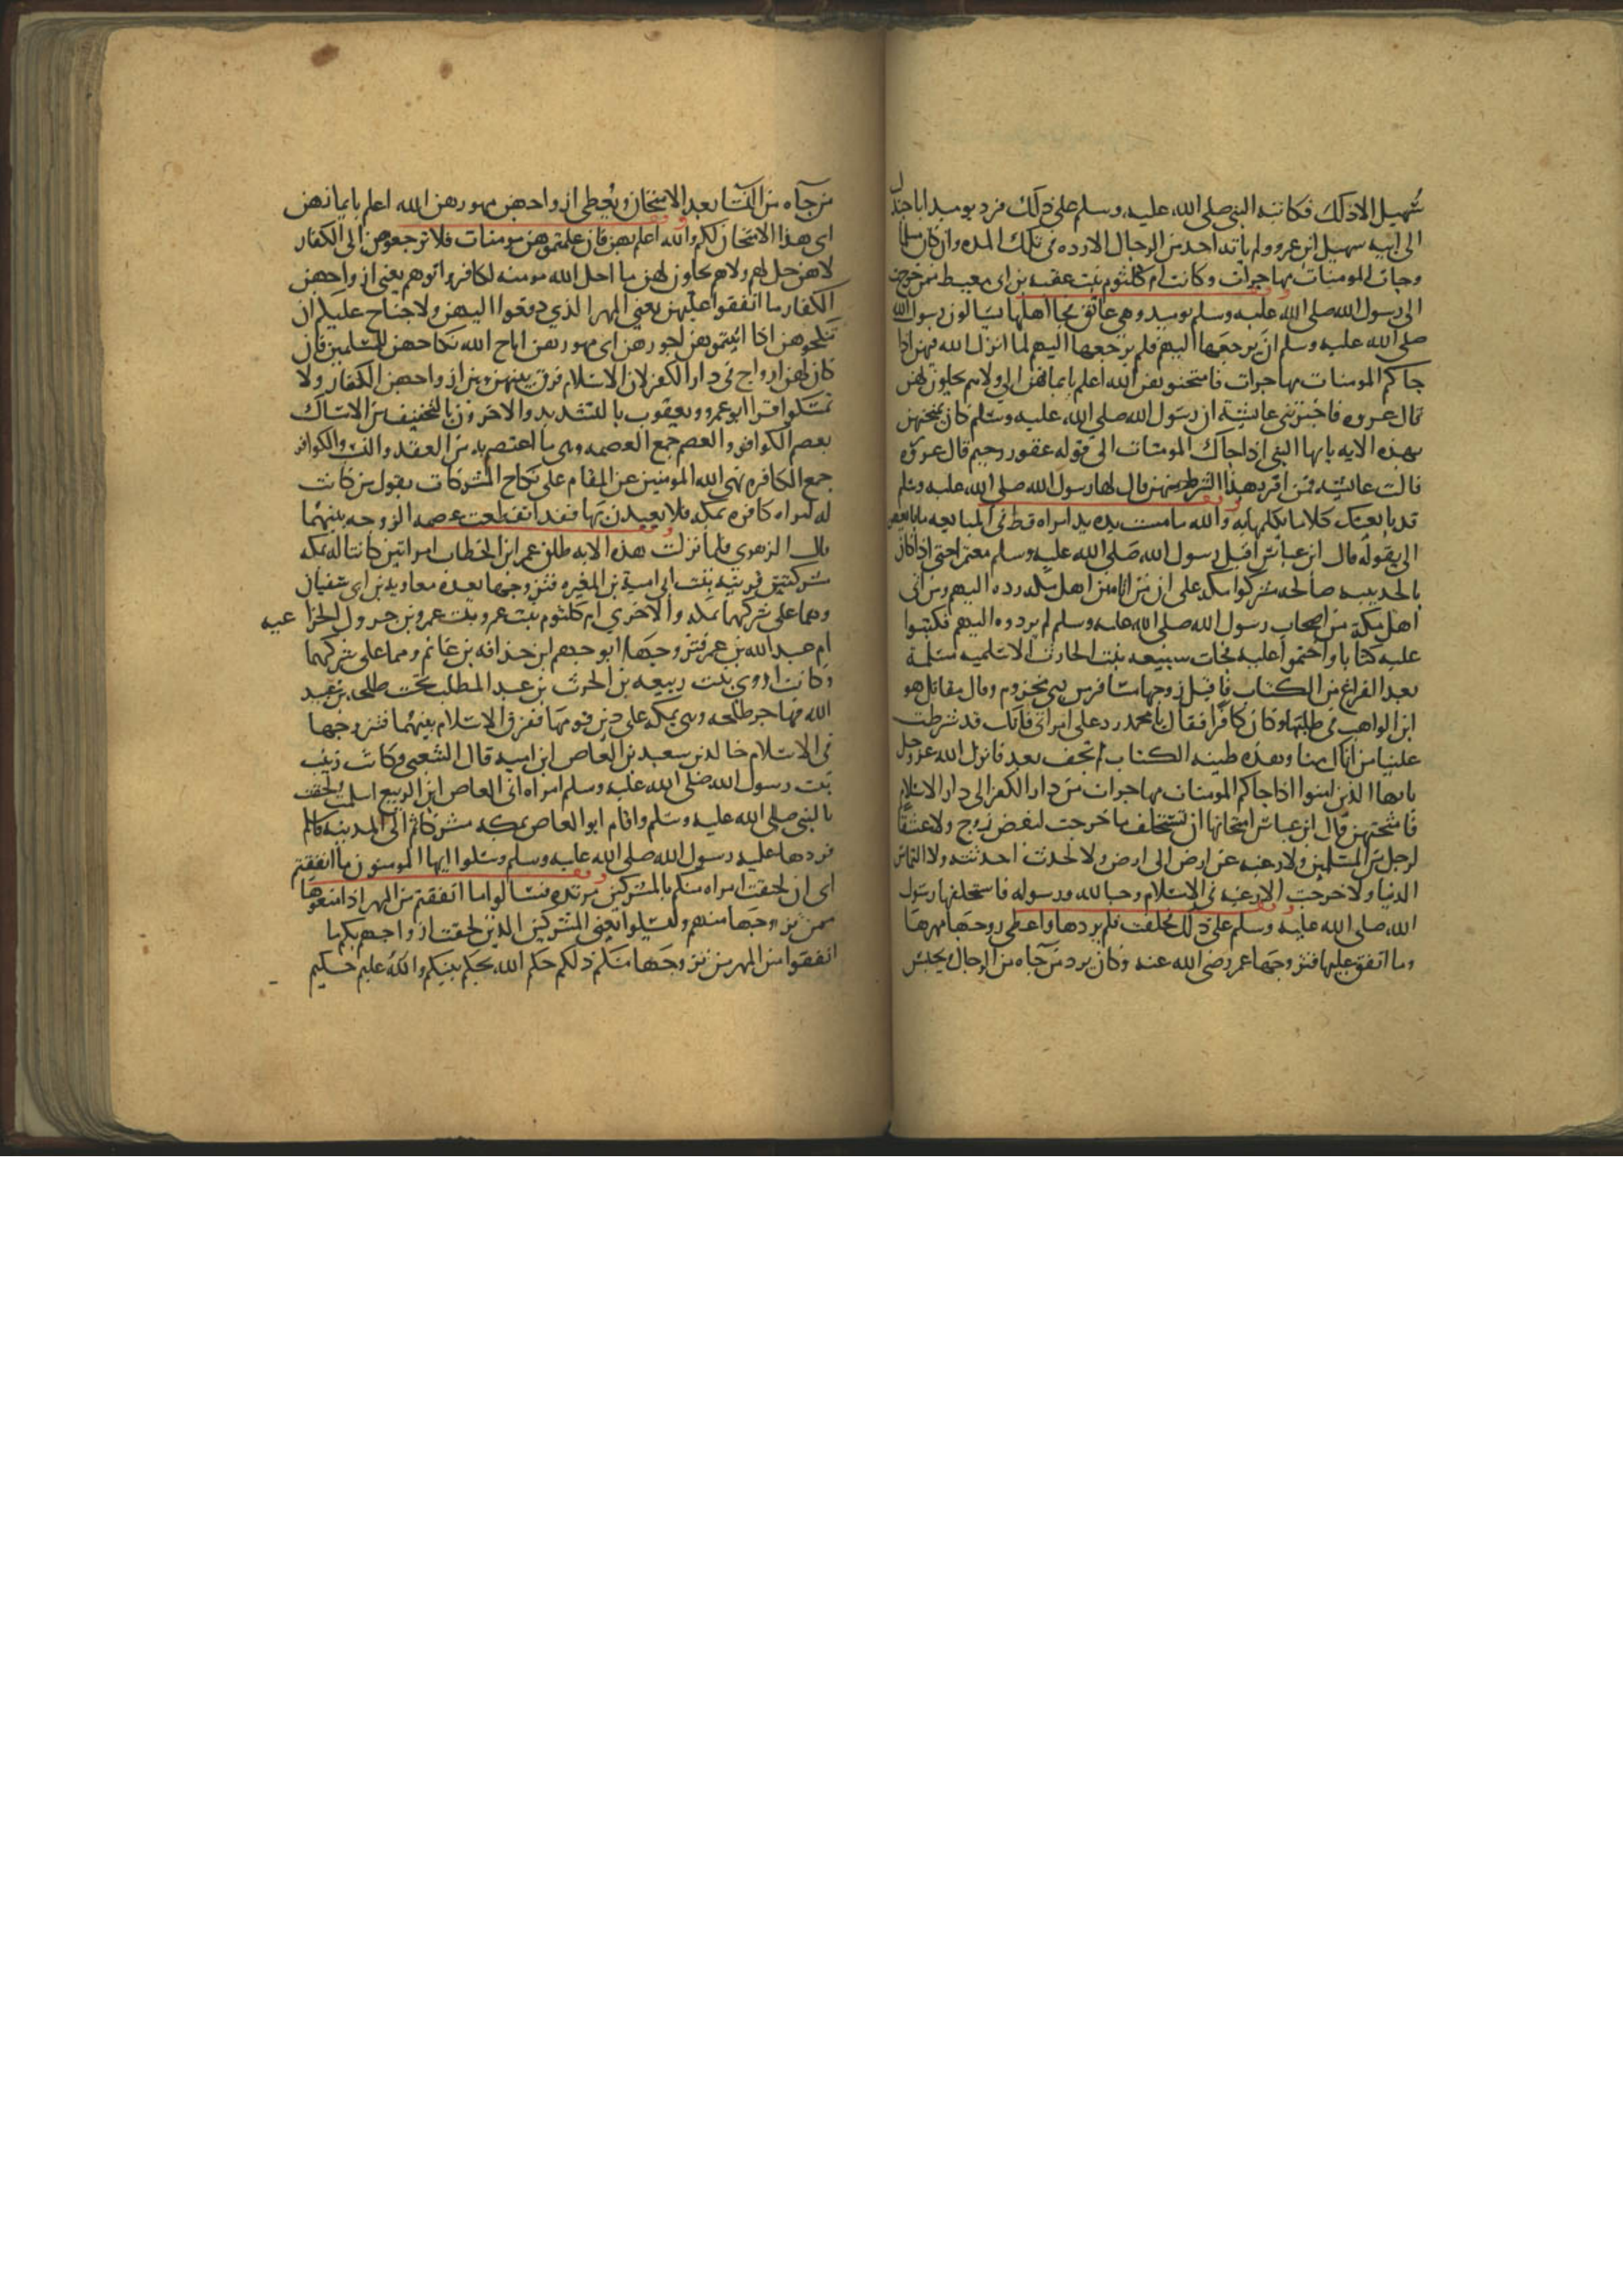 سهيل الا ذلك فكاتبه النبي صلى الله عليه وسلم على ذلك فرد يوميد ابا جندل
الى ابيه سهيل ابن عمرو ولم ياته احد من الرجال الا رده في تلك المده وان كان مسلما
وجات المومنات مهاجرات وكانت ام كلثوم بنت عقبه بن ابي معيط ممن خرج
الى رسول الله صلى الله عليه وسلم يوميد وهي عاتق فجا اهلها يسالون رسول الله
صلى الله عليه وسلم ان يرجعها اليهم فلم يرجعها اليهم لما انزل الله فيهن اذا
جاكم المومنات مهاجرات فامتحنوهن الله اعلم بايمانهن الى ولا هم يحلون لهن
قال عروه فاخبرتني عايشة ان رسول الله صلى الله عليه وسلم كان يمتحنهن
بهذه الايه يايها النبي اذا جاك المومنات الى قوله غفور رحيم قال عروة
قالت عايشه فمن اقر بهذا الشرط منهن قال لها رسول الله صلى الله عليه وسلم
قد بايعتك كلاما يكلمها به والله ما مست يده يد امراه قط في المبايعه ما بايعهن
الا بقوله قال ابن عباس اقبل رسول الله صلى الله عليه وسلم معتمرا حتى اذا كان
بالحديبيه صالحه مشركوا مكه على ان من اتاه من اهل مكه رده اليهم ومن اتى
اهل مكة من اصحاب رسول الله صلى الله عليه وسلم لم يردوه اليهم فكتبوا
عليه كتابا وختموا عليه فجات سبيعه بنت الحارث الاسلميه مسلمة
بعد الفراغ من الكتاب فاقبل زوجها مسافر من بني مخزوم وقال مقاتل هو
ابن الواهب في طلبها وكان كافرا فقال يا محمد رد على امراتي فانك قد شرطت
علينا من اتاك منا وهذه طينه الكتاب لم تجف بعد فانزل الله عز وجل
يايها الذين امنوا اذا جاكم المومنات مهاجرات من دار الكفر الى دار الاسلام
فامتحنوهن قال ابن عباس امتحانها ان تستحلف ما خرجت لبغض زوج ولا عشقا
لرجل من المسلمين ولا رغبه عن ارض الى ارض ولا لحدث احدثته ولا التماس
الدنيا ولا خرجت الا رغبه في الاسلام وحبا لله ورسوله فاستحلفها رسول
الله صلى الله عليه وسلم على ذلك فحلفت فلم يردها واعطى زوجها مهرها
وما انفق عليها فتزوجها عمر رضي الله عنه وكان يرد من جاه من الرجال ويحبس
من جاه من النسا بعد الامتحان ويعطي ازواجهن مهورهن الله اعلم بايمانهن
اي هذا الامتحان لكم والله اعلم بهن فان علمتموهن مومنات فلا ترجعوهن الى الكفار
لا هن حل لهم ولا هم يحلون لهن ما احل الله مومنه لكافر واتوهم يعني ازواجهن
الكفار ما انفقوا عليهن يعني المهر الذي دفعوا اليهن ولا جناح عليكم ان
تنكحوهن اذا اتيتموهن اجورهن اي مهورهن اباح الله نكاحهن للمسلمين فان
كان لهن ازواج في دار الكفر لان الاسلام فرق بينهن وبين ازواجهن الكفار ولا
تمسكوا قرا ابو عمرو ويعقوب بالتشديد والاخرون بالتخفيف من الامساك
بعصم الكوافر والعصم جمع العصمه وهي ما اعتصم به من العقد والنسب والكوافر
جمع الكافره نهى الله المومنين عن المقام على نكاح المشركات يقول من كانت
له امراه كافره بمكه فلا يعيدن بها فقد انقطعت عصمه الزوجه بينهما
قال الزهري فلما نزلت هذه الايه طلق عمر ابن الخطاب امراتين كانتا له بمكه
مشركتين قريبه بنت ابي امية بن المغيره فتزوجها بعده معاويه بن ابي سفيان
وهما على شركهما بمكه والاخرى ام كلثوم بنت عمرو بنت عمرو بن جرول الخزا عيه
ام عبد الله بن عمر فتزوجها ابو جهم ابن حذافه بن غانم وهما على شركهما
وكانت اروى بنت ربيعه بن الحرث بن عبد المطلب تحت طلحه بن عبيد
الله فهاجر طلحه وهي بمكه على دين قومها ففرق الاسلام بينهما فتزوجها
في الاسلام خالد بن سعيد بن العاص ابن اميه قال الشعبي وكانت زينب
بنت رسول الله صلى الله عليه وسلم امراه ابي العاص ابن الربيع اسلمت ولحقت
بالنبي صلى الله عليه وسلم واقام ابو العاص بمكه مشركا ثم اتى المدينه فاسلم
فردها عليه رسول الله صلى الله عليه وسلم وسلوا ايها المومنون ما انفقتم
اي ان لحقت امراه منكم بالمشركين مرتده فسالوا ما انفقتم من المهر اذا منعوها
ممن تزوجها منهم وليسلوا يعني المشركين الذين لحقت ازواجهم بكم ما
انفقوا من المهر من تزوجها منكم ذلكم حكم الله يحكم بينكم والله عليم حكيم